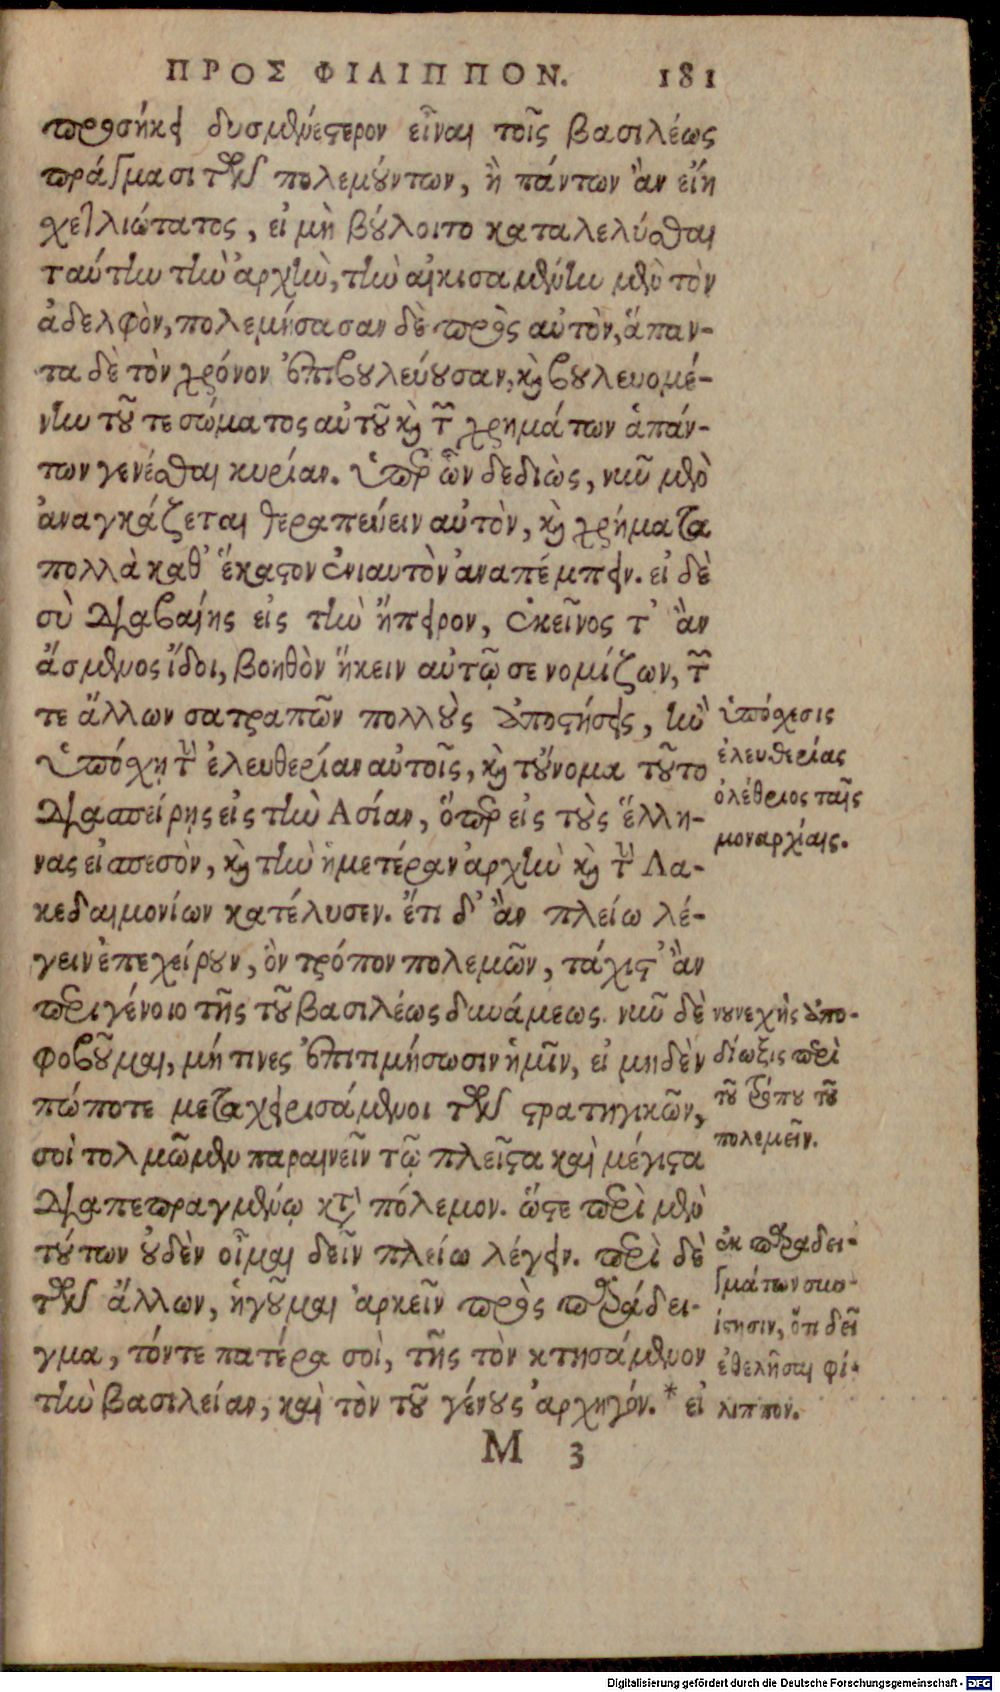 ΠΡΟΣ ΦΙΛΙΠΠΟΝ. 181
προσήκει δυσμενέστερον εἶναι τοῖς βασιλέως
πράγμασι τῶν πολεμούντων, ἢ πάντων ἂν εἴη
χετλιώτατος, εἰ μὴ βούλοιτο καταλελύσθαι
ταύτην τὴν ἀρχὴν, τὴν αἰκισαμένην μὲν τὸν
ἀδελφὸν, πολεμήσασαν δὲ πρὸς αὐτὸν, ἅπαν-
τα δὲ τὸν χρόνον ἐπιβουλεύουσαν, καὶ βουλευομέ-
νην τοῦ τε σώματος αὐτοῦ καὶ τῶν χρημάτων ἁπάν-
των γενέσθαι κυρίαν. ὑπὲρ ὧν δεδιὼς, νῦν μὲν
ἀναγκάζεται θεραπεύειν αὐτὸν, καὶ χρήματα
πολλὰ καθ' ἕκαστον ἐνιαυτὸν ἀναπέμπειν. εἰ δὲ
σὺ διαβαίης εἰς τὴν ἤπειρον, ἐκεῖνος τ' ἂν
ἄσμενος ἴδοι, βοηθὸν ἥκειν αὐτῷ σε νομίζων, τῶν
τε ἄλλων σατραπῶν πολλοὺς ἀποστήσεις, ἢν
ὑπόσχῃ τὴν ἐλευθερίαν αὐτοῖς, καὶ τοὔνομα τοῦτο
διασπείρῃς εἰς τὴν Ἀσίαν, ὅπερ εἰς τοὺς ἕλλη-
νας εἰσπεσὸν, καὶ τὴν ἡμετέραν ἀρχὴν καὶ τὴν Λα-
κεδαιμονίων κατέλυσεν. ἔτι δ' ἂν πλείω λέ-
γειν ἐπεχείρουν, ὃν τρόπον πολεμῶν, τάχιστ' ἂν
περιγένοιο τῆς τοῦ βασιλέως δυνάμεως. νῦν δὲ
φοβοῦμαι, μή τινες ἐπιτιμήσωσιν ἡμῖν, εἰ μηδὲν
πώποτε μεταχειρισάμενοι τῶν στρατηγικῶν,
σοὶ τολμῶμεν παραινεῖν τῷ πλεῖστα καὶ μέγιστα
διαπεπραγμένῳ κατὰ πόλεμον. ὥστε περὶ μὲν
τούτων οὐδὲν οἶμαι δεῖν πλείω λέγειν. περὶ δὲ
τῶν ἄλλων, ἡγοῦμαι ἀρκεῖν πρὸς παράδει-
γμα, τόν τε πατέρα σοὶ, τῆς τὸν κτησάμενον
τὴν βασιλείαν, καὶ τὸν τοῦ γένους ἀρχηγόν. * εἰ
Μ 3
ὑπόσχεσις
ἐλευθερίας
ὀλέθριος ταῖς
μοναρχίαις.
νουνεχὴς ἀπο-
δίωξις περὶ
τοῦ τρόπου τοῦ
πολεμεῖν.
ἐκ παραδει-
γμάτων συν-
ίστησιν, ὅτι δεῖ
ἐθελῆσαι φί-
λιππον.
Digitalisierung gefördert durch die Deutsche Forschungsgemeinschaft - DFG